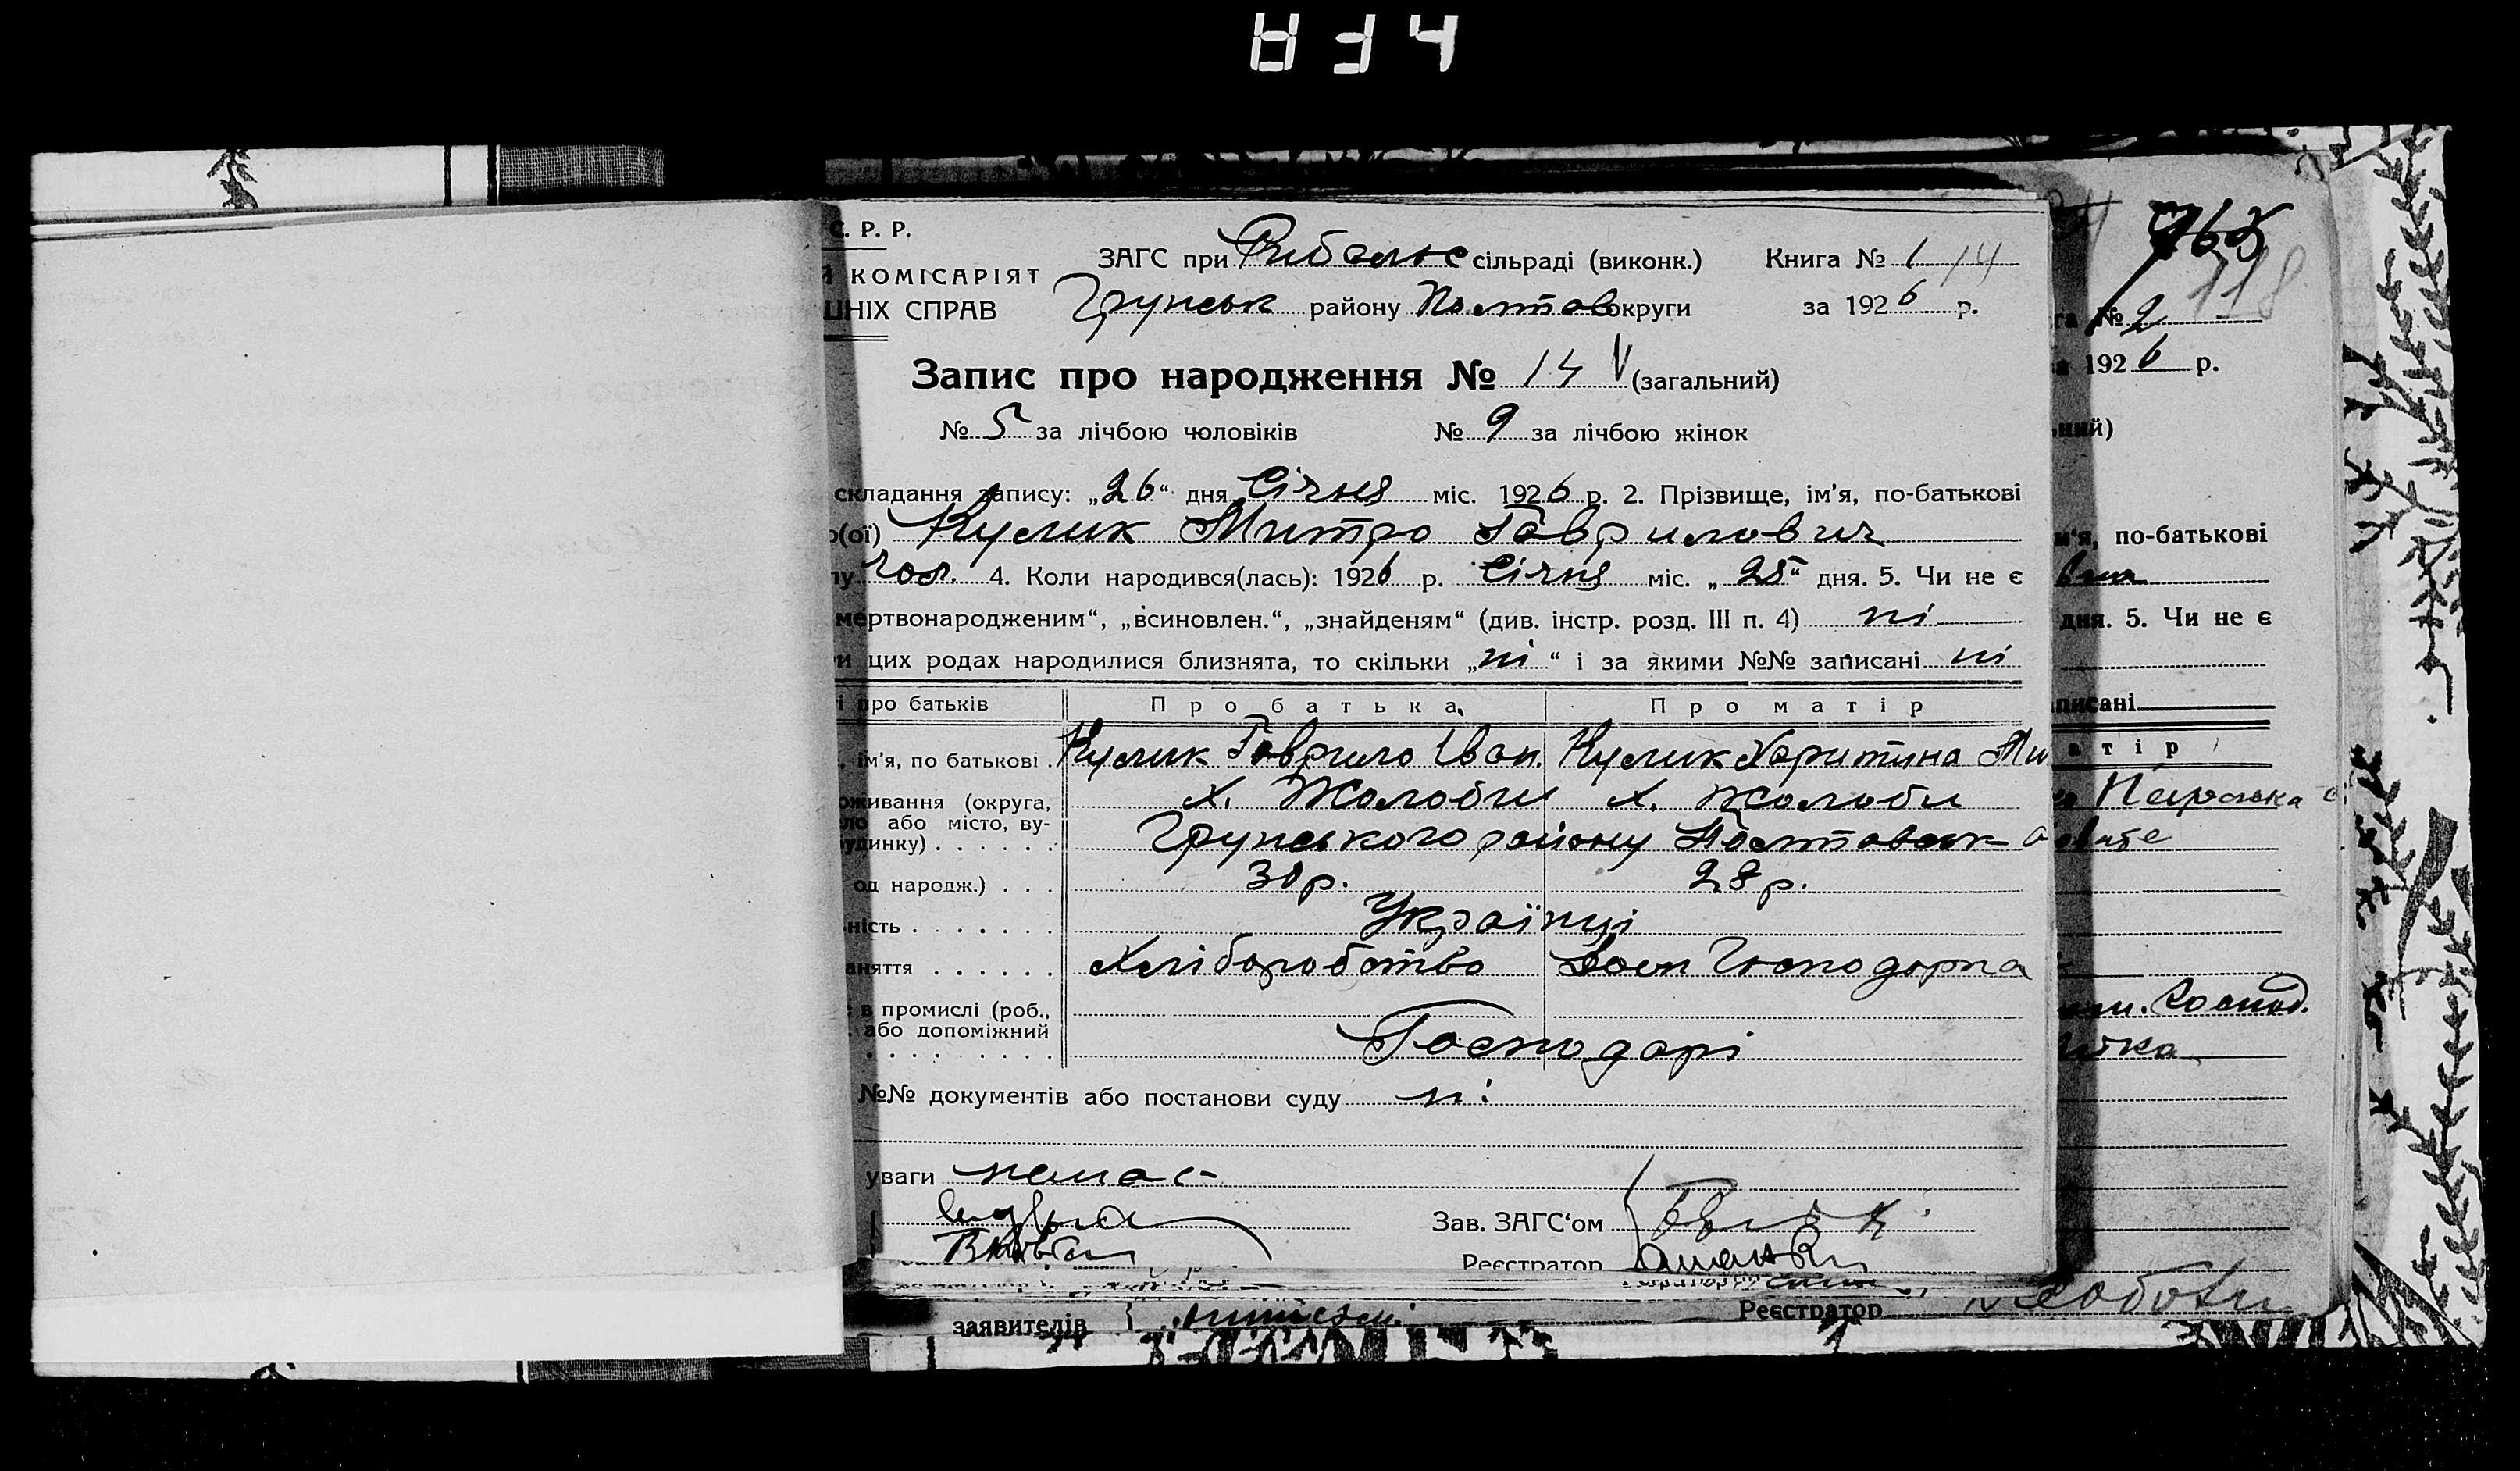 834
С. Р. Р.
Й КОМІСАРІЯТ
ШНІХ СПРАВ
ЗАГС при Рибальс сільраді (виконк.) Книга № 1 14
Грунськ району Полтав округи за 1926 р.
Запис про народження № 14 V (загальний)
№ 5 за лічбою чоловіків № 9 за лічбою жінок
складання запису: „26“ дня Січня міс. 1926 р. 2. Прізвище, ім'я, по-батькові
о(ої) Кулик Митро Гаврилович
лу чол. 4. Коли народився(лась): 1926 р. Січня міс. „25“ дня. 5. Чи не є
мертвонародженим“, „всиновлен.“, „знайденям“ (див. інстр. розд. III п. 4) ні
и цих родах народилися близнята, то скільки „ні“ і за якими №№ записані ні
і про батьків Про батька Про матір
, ім'я, по батькові . Кулик Гаврило Іван. Кулик Харитина Ми
оживання (округа, х. Жолоби х. Жолоби
ло або місто, ву-
удинку) . . . . . . Грунського району Полтавськ
од народж.) . . . 30 р. 28 р.
ність . . . . . . . Українці
аняття . . . . . . Хліборобство Дом Господарка
в промислі (роб.,
. або допоміжний Господарі
№№ документів або постанови суду ні
уваги немає
Зав. ЗАГС'ом
Реєстратор
118
га № 2
1926 р.
ьний)
м'я, по-батькові
дня. 5. Чи не є
писані
а т і р
Госпód.
заявителів
Реєстратор